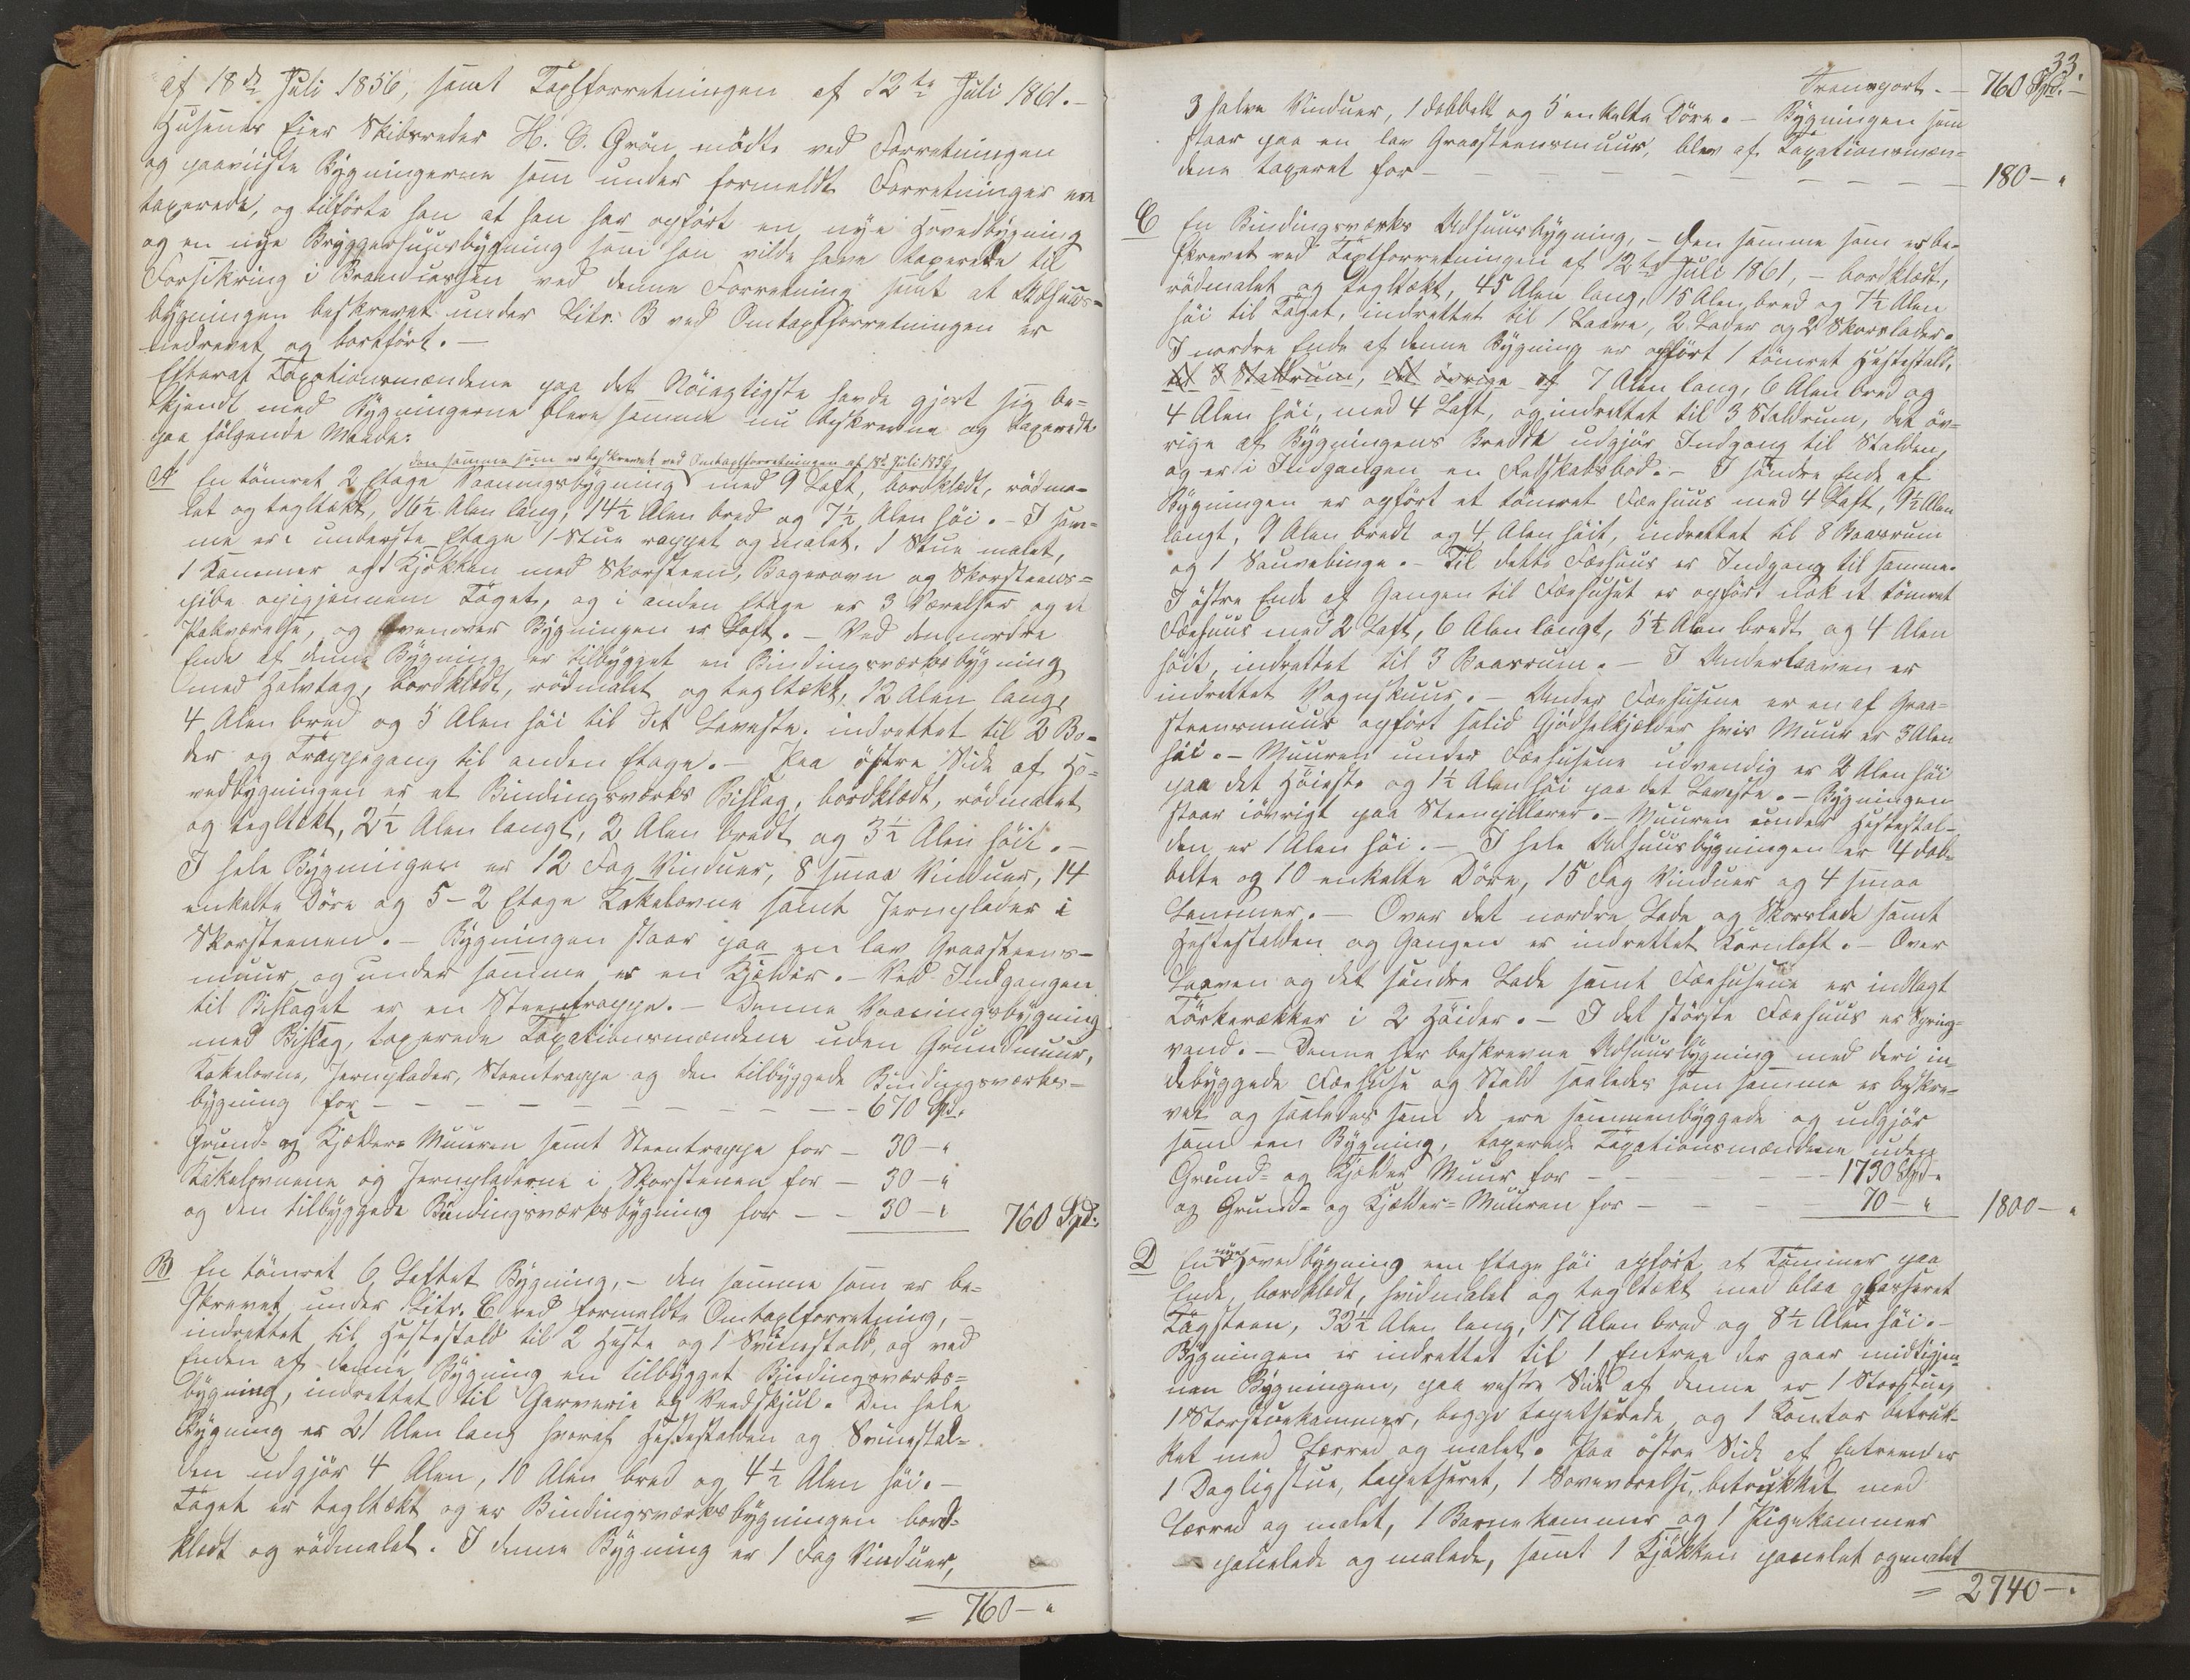 af 18de Juli 1856, samt Taxtforretningen af 12te Juli 1861.-
Husenes Eier Skibsreder H. C. Grøn mødte ved Forretningen
og paaviiste Bygningerne som under formeldte Forretninger ere
taxerede, og tilførte han at han har opført en nye Hovedbygning
og en nye Bryggerhuusbygning som han vilde have taxerede til
Forsikring i Brandcassen ved denne Forretning samt at Udhuus-
bygningen beskrevet under Litr: B ved Omtaxtforretningen er
nedrevet og bortført.-
Efterat Taxationsmændene paa det Nøiagtigste havde gjort sig be-
kjendt med Bygningerne bleve samme nu beskrevne og taxerede
paa følgende Maade:
den samme som er beskrevet ved Omtaxtforretningen af 18de Juli 1856
A En tømret 2 Etage Vaaningsbygning med 9 Laft, bordklædt, rødma-
let og tegltækt, 16½ Alen lang, 14½ Alen bred og 7½ Alen høi. - I sam-
me er i underste Etage 1 Stue rappet og malet, 1 Stue malet,
1 Kammer og 1 Kjøkken med Skorsteen, Bagerovn og Skorsteens-
pibe opigjennem Taget, og i anden Etage er 3 Værelser og et
Halvværelse, og ovenover Bygningen er Loft. - Ved den nordre
Ende af denne Bygning er tilbygget en Bindingsværksbygning
med Halvtag, bordklædt, rødmalet og tegltækt, 12 Alen lang,
4 Alen bred og 5 Alen høi til det Laveste, indrettet til 2 Bo-
der og Trappegang til anden Etage. - Paa østre Side af Ho-
vedbygningen er et Bindingsværks Bislag, bordklædt, rødmalet
og tegltækt, 2½ Alen langt, 2 Alen bredt og 3½ Alen høit. -
I hele Bygningen er 12 Fag Vinduer, 8 smaa Vinduer, 14
enkelte Døre og 5 - 2 Etage Kakelovne samt Jernplader i
Skorsteenen. - Bygningen staar paa en lav Graasteens-
muur og under samme er en Kjelder. - Ved Indgangen
til Bislaget er en Steentrappe. - Denne Vaaningsbygning
med Bislag, taxerede Taxationsmændene uden Grundmuur,
Kakelovne, Jernplader, Steentrappe og den tilbyggede Bindingsværks-
bygning for - - - - - - - - - - 670 Spd.
Grund- og Kjelder-Muuren samt Steentrappe for - 30 - "
Kakelovnene og Jernpladerne i Skorstenen for - 30 - "
og den tilbyggede Bindingsværksbygning for - - 30 - " 760 Spd:
B En tømret 6 Laftet Bygning, - den samme som er be-
skrevet under Litr. C ved formeldte Omtaxtforretning, -
indrettet til Hestestald til 2 Heste og 1 Svinestald, og ved
Enden af denne Bygning en tilbygget Bindingsværks-
bygning, indrettet til Garverie og Vedskjul. Den hele
Bygning er 21 Alen lang hvoraf Hestestalden og Svinestal-
den udgjør 4 Alen, 10 Alen bred og 4½ Alen høi. -
Taget er tegltækt og er Bindingsværksbygningen bord-
klædt og rødmalet. I denne Bygning er 1 Fag Vinduer,
= 760 - "
33.
Transport. - 760 Spd. -
3 halve Vinduer, 1 dobbelt og 5 enkelte Døre. - Bygningen som
staar paa en lav Graasteensmuur, blev af Taxationsmæn-
dene taxeret for - - - - - - - - - - 180 - "
C En Bindingsværks Udhuusbygning, - den samme som er be-
skrevet ved Taxtforretningen af 12te Juli 1861, - bordklædt,
rødmalet og tegltækt, 45 Alen lang, 18 Alen bred og 7½ Alen
høi til Taget, indrettet til 1 Laave, 2 Lader og 2 Skarslader.
I nordre Ende af denne Bygning er opført 1 tømret Hestestald,
til 3 Staldrum, det øvrige af 7 Alen lang, 6 Alen bred og
4 Alen høi, med 4 Laft, og indrettet til 3 Staldrum, det øv-
rige af Bygningens Bredde udgjør Indgang til Stalden,
og er i Indgangen en Redskabsbod. - I søndre Ende af
Bygningen er opført et tømret Fæehuus med 4 Laft, 9½ Alen
langt, 9 Alen bredt og 4 Alen høit, indrettet til 8 Baasrum
og 1 Sauebinge. - Til dette Fæehuus er Indgang til samme.
I østre Ende af Gangen til Fæehuset er opført nok et tømret
Fæehuus med 2 Laft, 6 Alen langt, 5½ Alen bredt og 4 Alen
høit, indrettet til 3 Baasrum. - I Underlaaven er
indrettet Vognskuur. - Under Fæehusene er en af Graa-
steensmuur opført solid Gjødselkjelder hvis Muur er 3 Alen
høi. - Muuren under Fæehusene udvendig er 2 Alen høi
paa det Høieste og 1½ Alen høi paa det Laveste. - Bygningen
staar iøvrigt paa Steenpillarer. - Muuren under Hestestal-
den er 1 Alen høi. - I hele Udhuusbygningen er 4 dob-
belte og 10 enkelte Døre, 15 Fag Vinduer og 4 smaa
Lemmer. - Over det nordre Lade og Skarslade samt
Hestestalden og Gangen er indrettet Kornloft. - Over
Laaven og det søndre Lade samt Fæehusene er indlagt
Tørkerækker i 2 Høider. - I det største Fæehuus er Spring-
vand. - Denne her beskrevne Udhuusbygning med deri in-
debyggede Fæehuse og Stald saaledes som samme er beskre-
vet og saaledes som de ere sammenbyggede og udgjør
som een Bygning, taxerede Taxationsmændene uden
Grund- og Kjelder Muur for - - - - - - 1730 Spd.
og Grund- og Kjelder-Muuren for - - - - 70 - " 1800 - "
D En nye Hovedbygning een Etage høi opført af Tømmer paa
Ende, bordklædt, hvidmalet og tegltækt med blaa glasseret
Tagsteen, 32½ Alen lang, 17 Alen bred og 8½ Alen høi. -
Bygningen er indrettet til 1 Entree der gaar midtigjen-
nem Bygningen, paa vestre Side af denne er 1 Storstue,
1 Storstuekammer, begge tapetserede, og 1 Kontor betruk-
ket med Lærred og malet. Paa østre Side af Entreen er
1 Dagligstue, tapetseret, 1 Soveværelse, betrukket med
Lærred og malet, 1 Barnekammer og 1 Pigekammer
panelede og malede, samt 1 Kjøkken panelet og malet
= 2740 - "